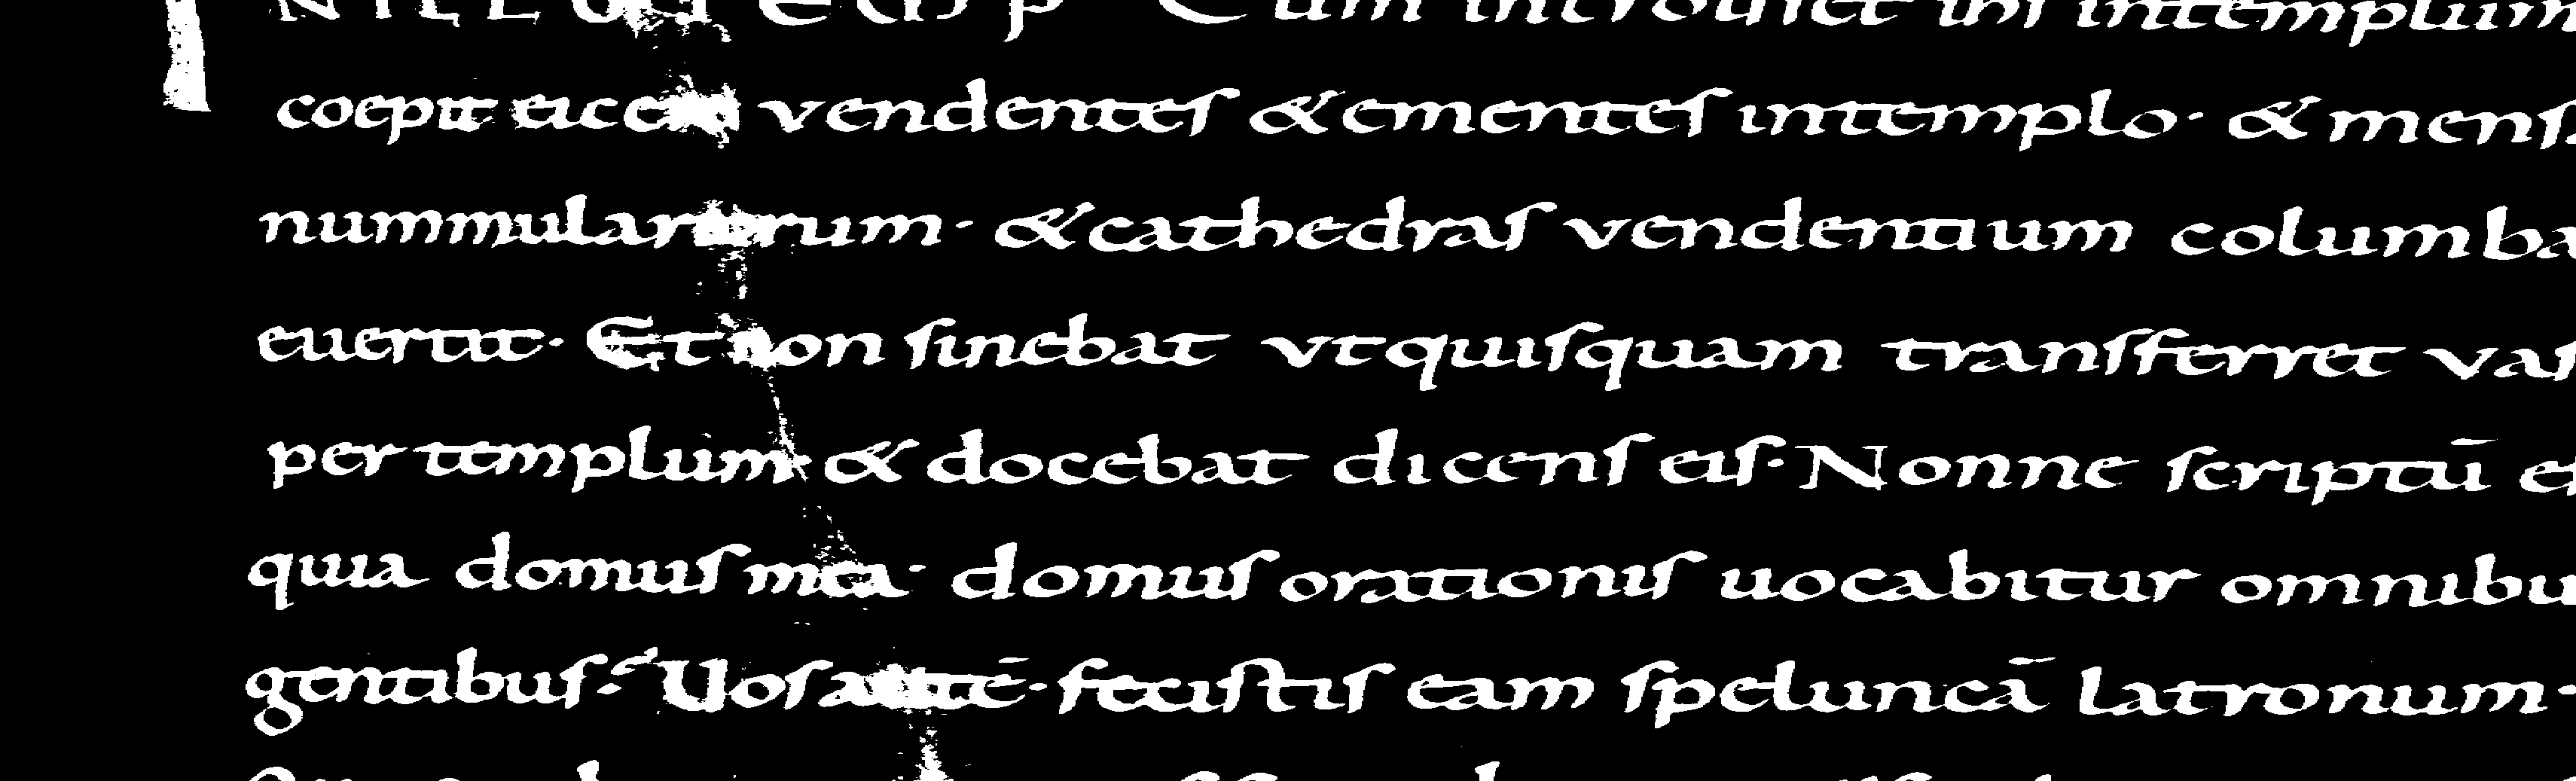 IN ILLO Cum introisset ihs intemplum
coepit eicere vendentes & ementes intemplo· & mens
nummulariorum· & cathedras vendentium columba
euertit· Et non sinebat vt quisquam transferret vas
per templum· & docebat dicens eis· Nonne scriptū es
quia domus mea· domus orationis uocabitur omnibu
gentibus· Uos autē· fecistis eam speluncā latronum·